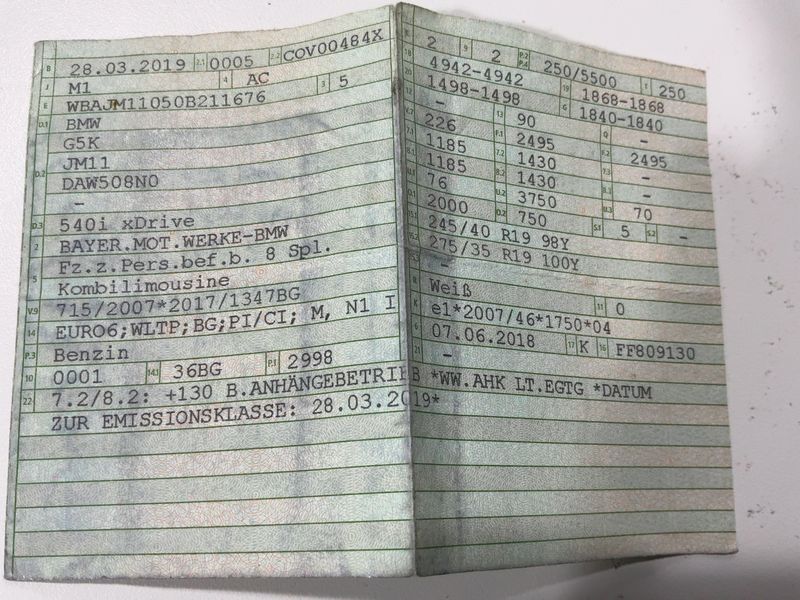 B 28.03.2019 2.1 0005 2.2 COV00484X
J M1 4 AC 3 5
E WBAJM11050B211676
D.1 BMW
G5K
D.2 JM11
DAW508N0
–
D.3 540i xDrive
2 BAYER.MOT.WERKE-BMW
Fz.z.Pers.bef.b. 8 Spl.
5 Kombilimousine
V.9 715/2007*2017/1347BG
14 EURO6;WLTP;BG;PI/CI; M, N1 I
P.3 Benzin
10 0001 14.1 36BG P.1 2998
22 7.2/8.2: +130 B.ANHÄNGEBETRIEB *WW.AHK LT.EGTG *DATUM
ZUR EMISSIONSKLASSE: 28.03.2019*
2 9 2 P.2 P.4 250/5500 T 250
18 4942-4942 19 1868-1868
20 1498-1498 G 1840-1840
12 – 13 90 Q –
V.7 226 F.1 2495 F.2 2495
7.1 1185 7.2 1430 7.3 –
8.1 1185 8.2 1430 8.3 –
U.1 76 U.2 3750 U.3 70
O.1 2000 O.2 750 S.1 5 S.2 –
15.1 245/40 R19 98Y
15.2 275/35 R19 100Y
–
R Weiß 11 0
K e1*2007/46*1750*04
6 07.06.2018 17 K 16 FF809130
21 –